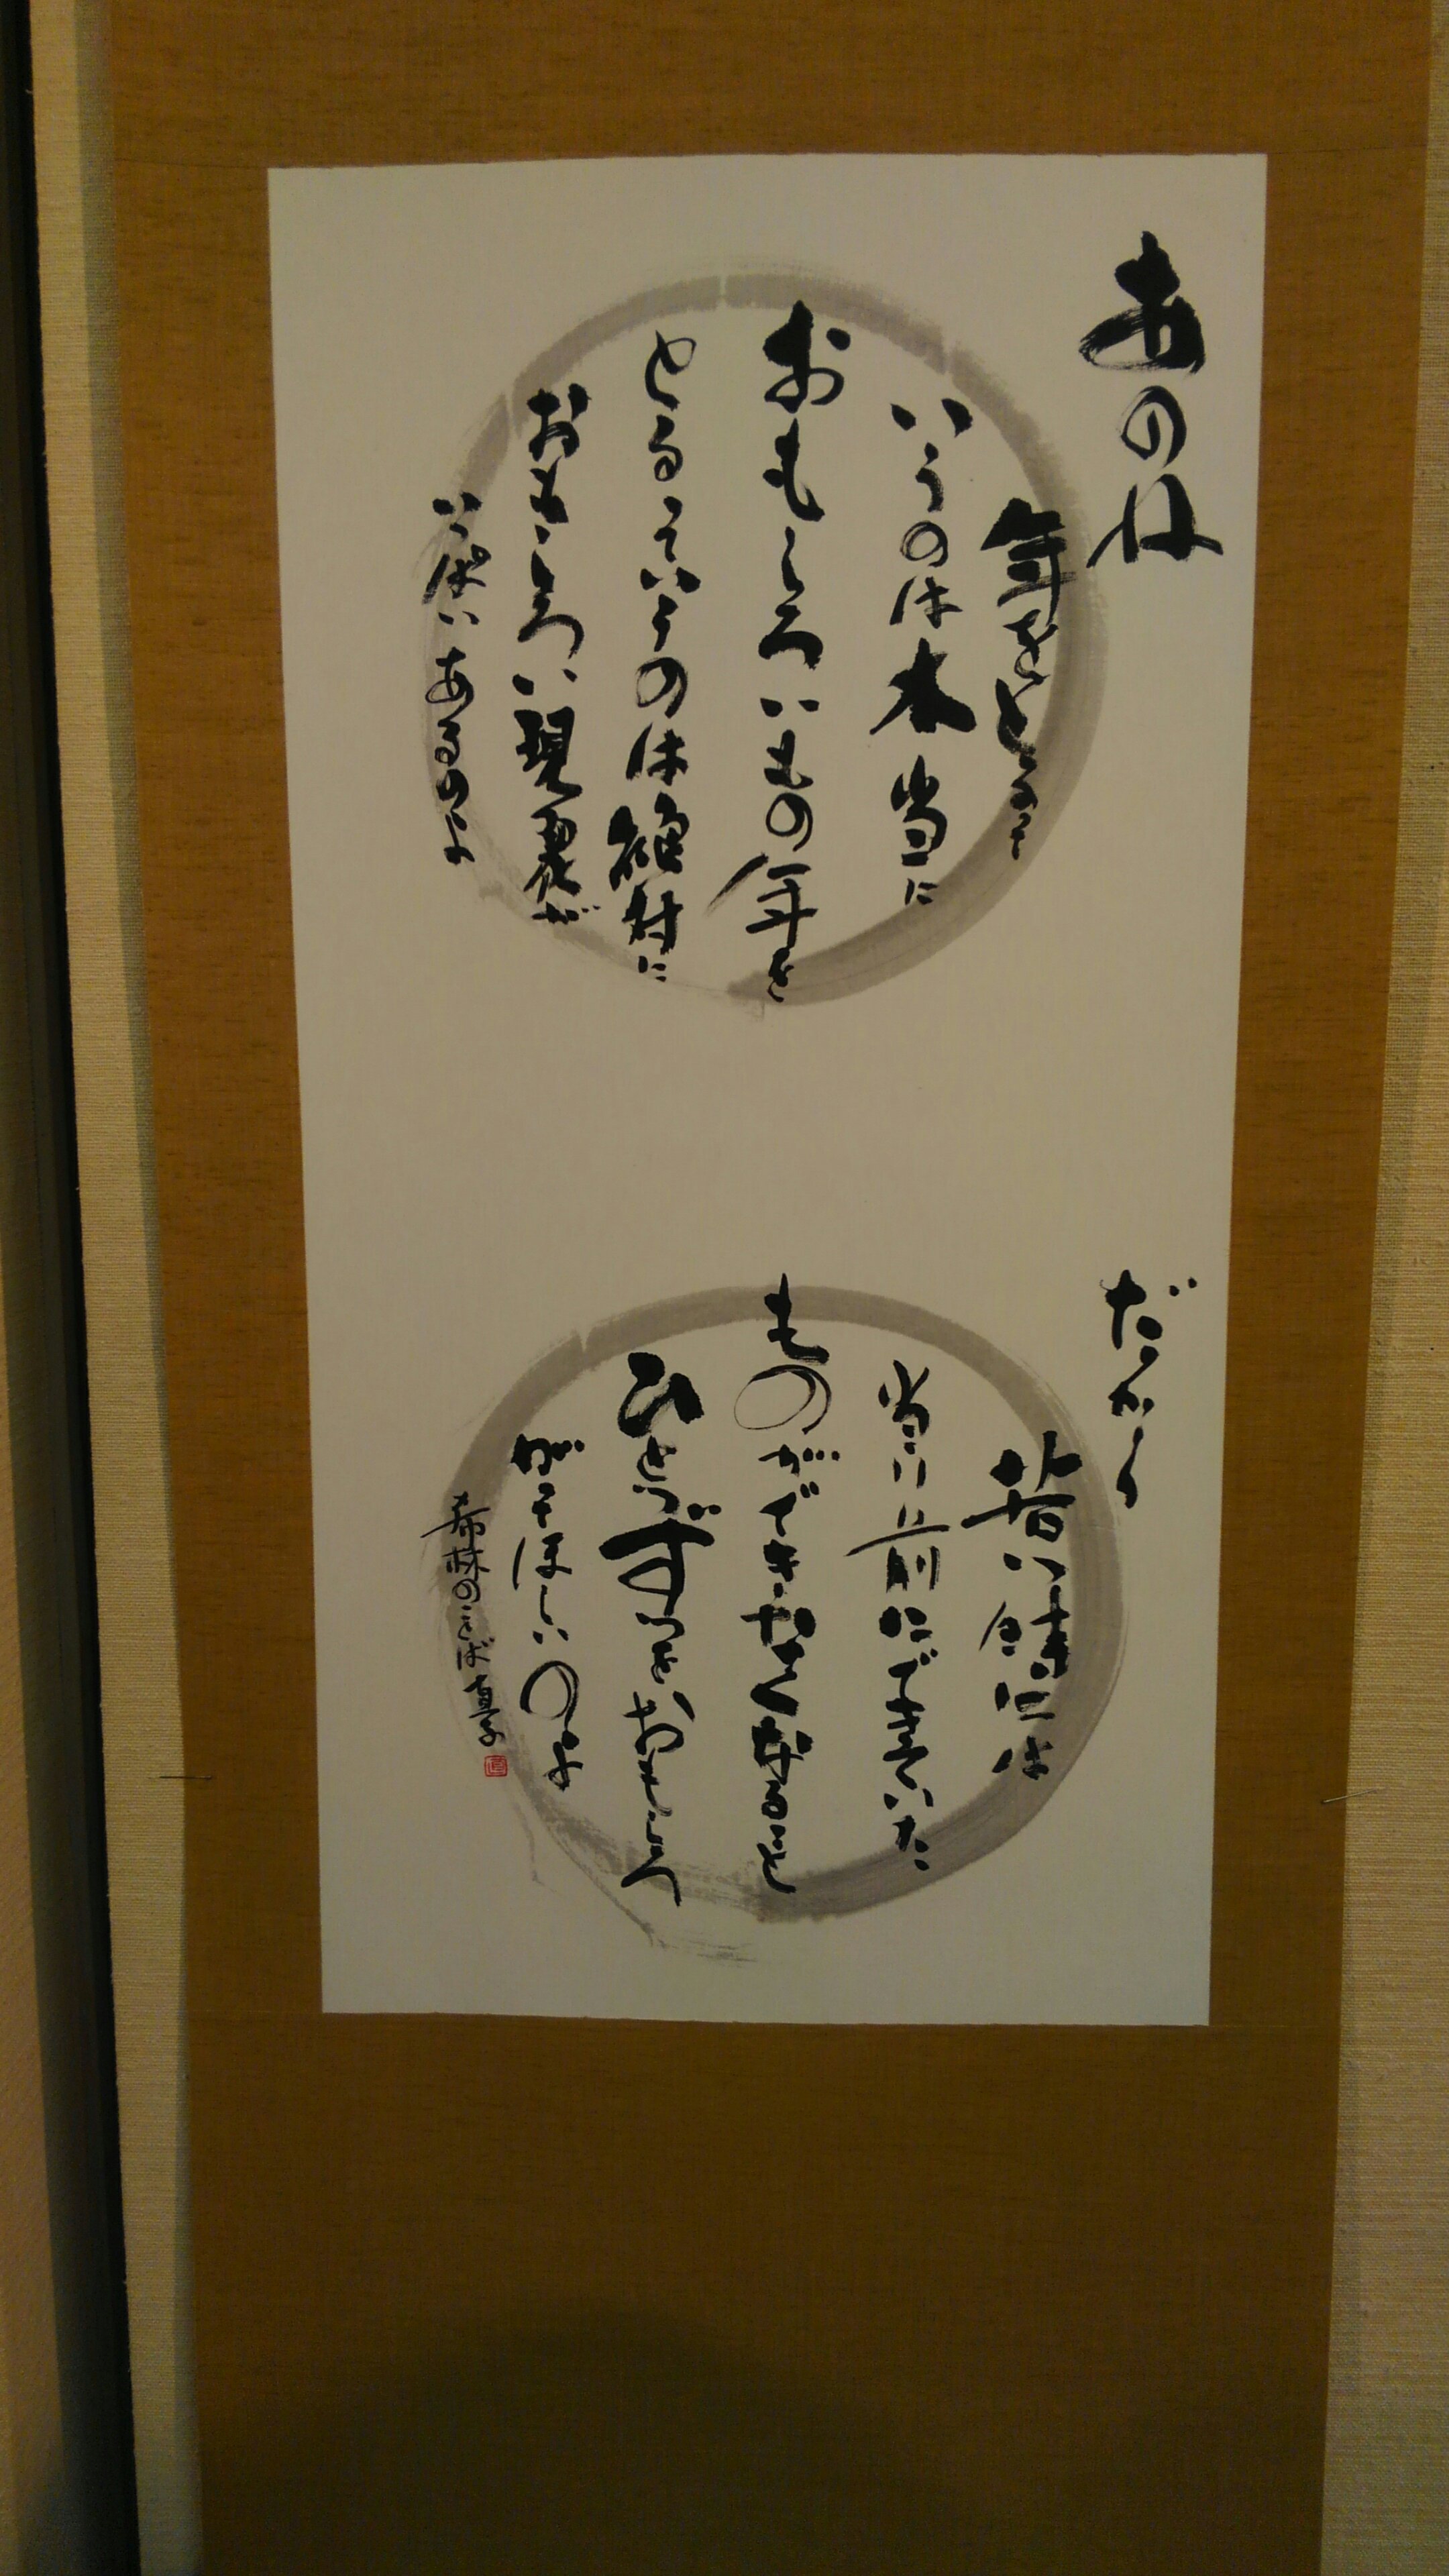 あのね
年をとるって
いうのは本当に
おもしろいもの年を
とるっていうのは絶対に
おもしろい現象が
いっぱいあるのよ
だから
若い時には
当り前にできていた
ものができなくなること
ひとつずつを、おもしろ
がってほしいのよ
希林のことば 直子